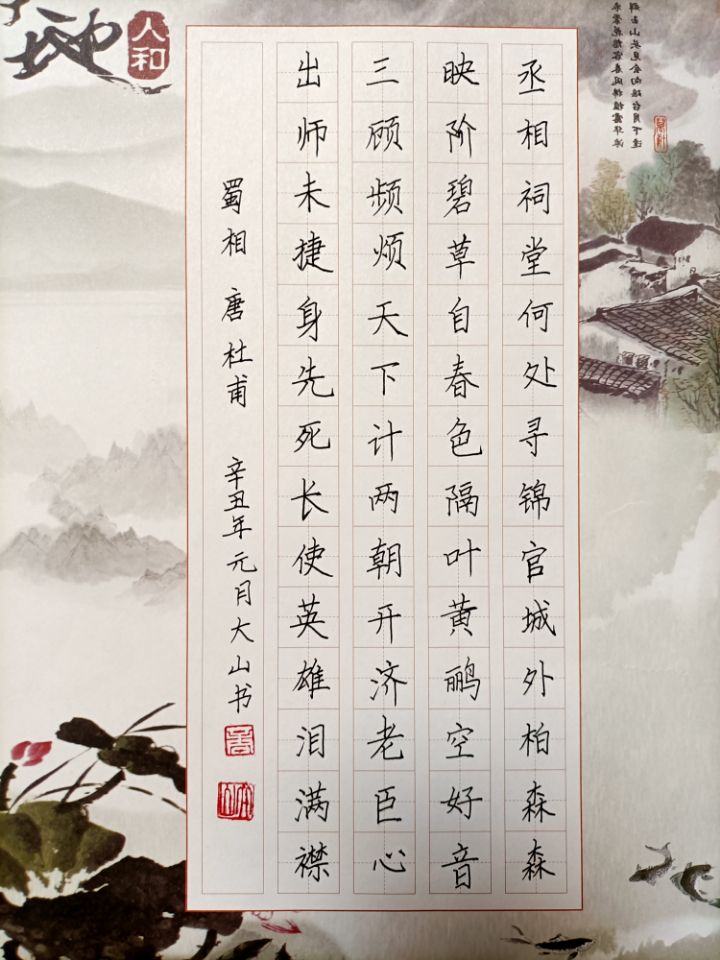 丞相祠堂何处寻锦官城外柏森森
映阶碧草自春色隔叶黄鹂空好音
三顾频烦天下计两朝开济老臣心
出师未捷身先死长使英雄泪满襟
蜀相 唐 杜甫 辛丑年元月大山书
地
人和